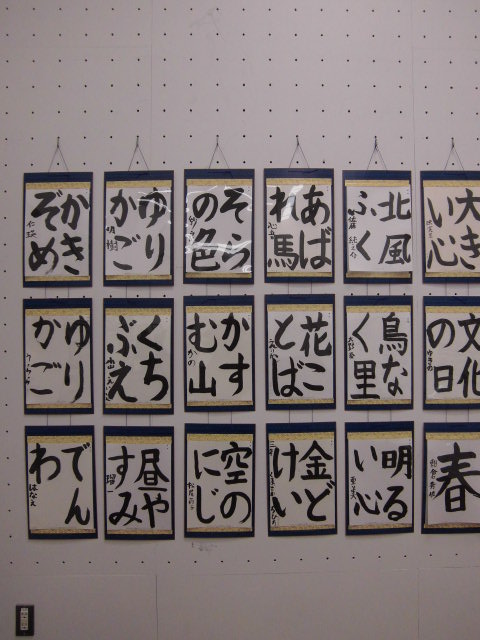 大き
い心
北風
ふく
あば
れ馬
そら
の色
ゆり
かご
かき
ぞめ
文化
の日
鳥な
く里
花こ
とば
かす
む山
くち
ぶえ
ゆり
かご
春
明る
い心
金ど
けい
空の
にじ
昼や
すみ
でん
わ
はなえ